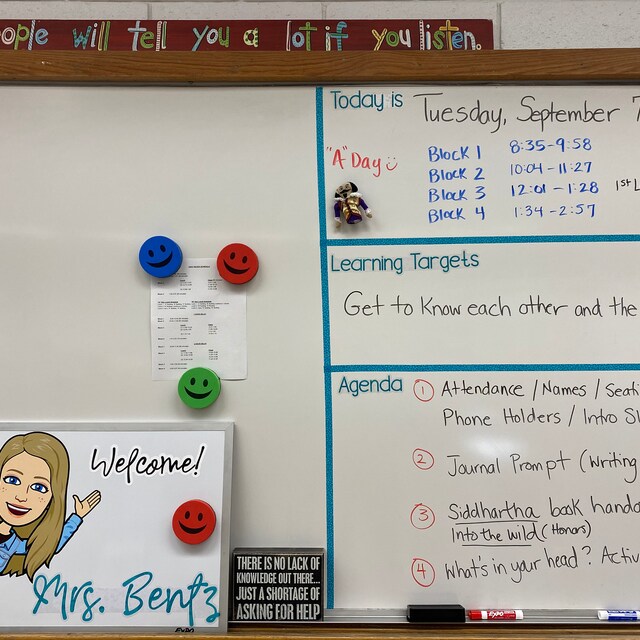 ople will tell you a lot if you listen.
Today is Tuesday, September 7
"A" Day
Block 1 8:35-9:58
Block 2 10:04-11:27
Block 3 12:01-1:28 1st L
Block 4 1:34-2:57
Learning Targets
Get to Know each other and the
Agenda
1 Attendance / Names / Seati
Phone Holders / Intro Sl
2 Journal Prompt (Writing
3 Siddhartha book hando
Into the wild (Honors)
4 What's in your head? Activ
Welcome!
Mrs. Bentz
EXPO
THERE IS NO LACK OF
KNOWLEDGE OUT THERE...
JUST A SHORTAGE OF
ASKING FOR HELP
EXPO